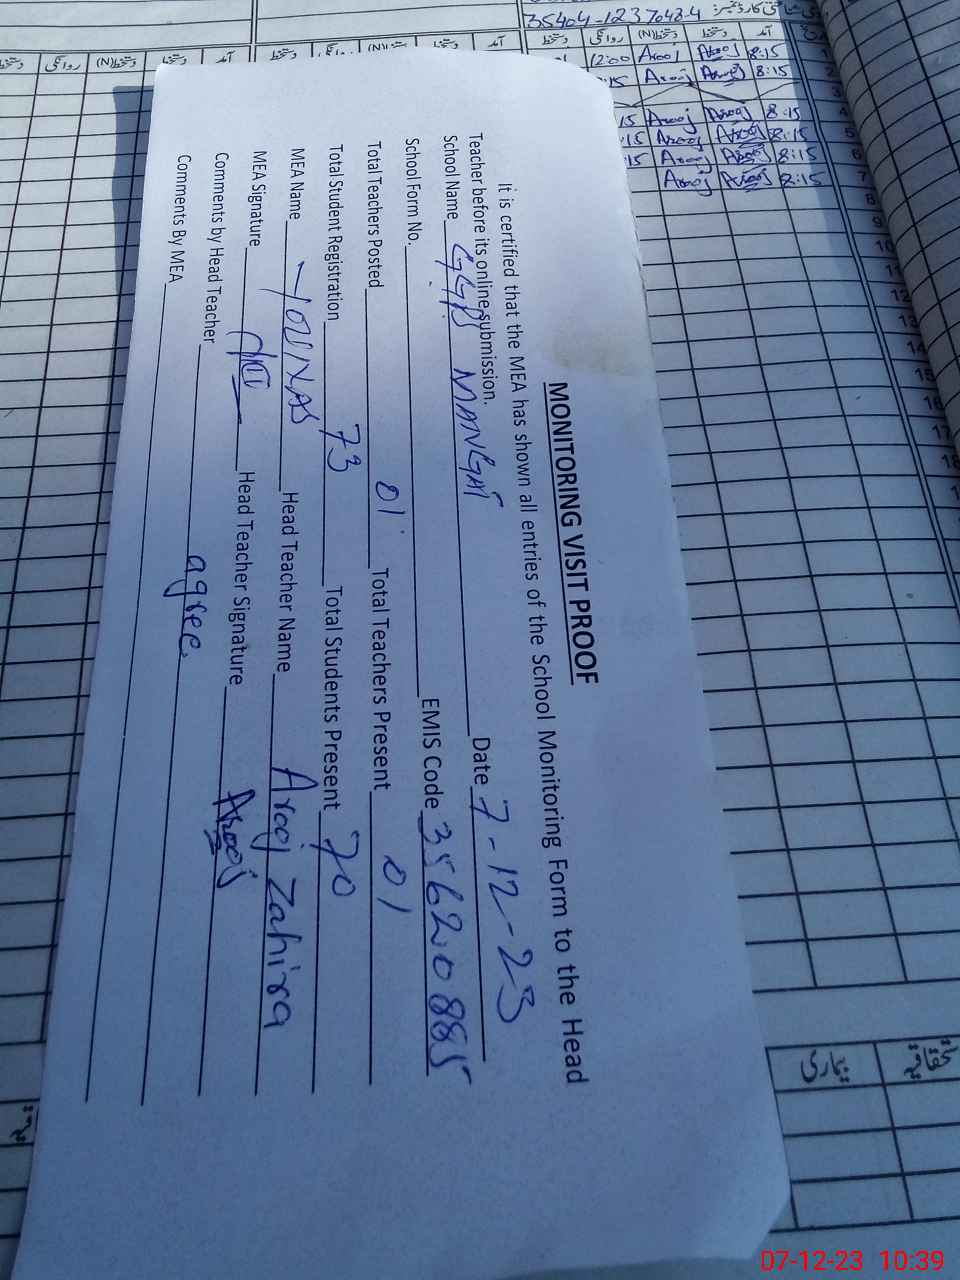 MONITORING VISIT PROOF
It is certified that the MEA has shown all entries of the School Monitoring Form to the Head
Teacher before its online submission.
School Name GGPS MANGAT Date 7-12-23
School Form No. EMIS Code 35620885
Total Teachers Posted 01 Total Teachers Present 01
Total Student Registration 73 Total Students Present 70
MEA Name YOUNAS Head Teacher Name Arooj Zahira
MEA Signature Head Teacher Signature Arooj
Comments by Head Teacher agree
Comments By MEA
35404-1237048-4
آمد دستخط دستخط(N) روانگی دستخط
8:15 Arooj Arooj 12:00
8:15 Arooj Arooj
8:15 Arooj Arooj
8:15 Arooj Arooj
8:15 Arooj Arooj
8:15 Arooj Arooj
بیماری
07-12-23 10:39